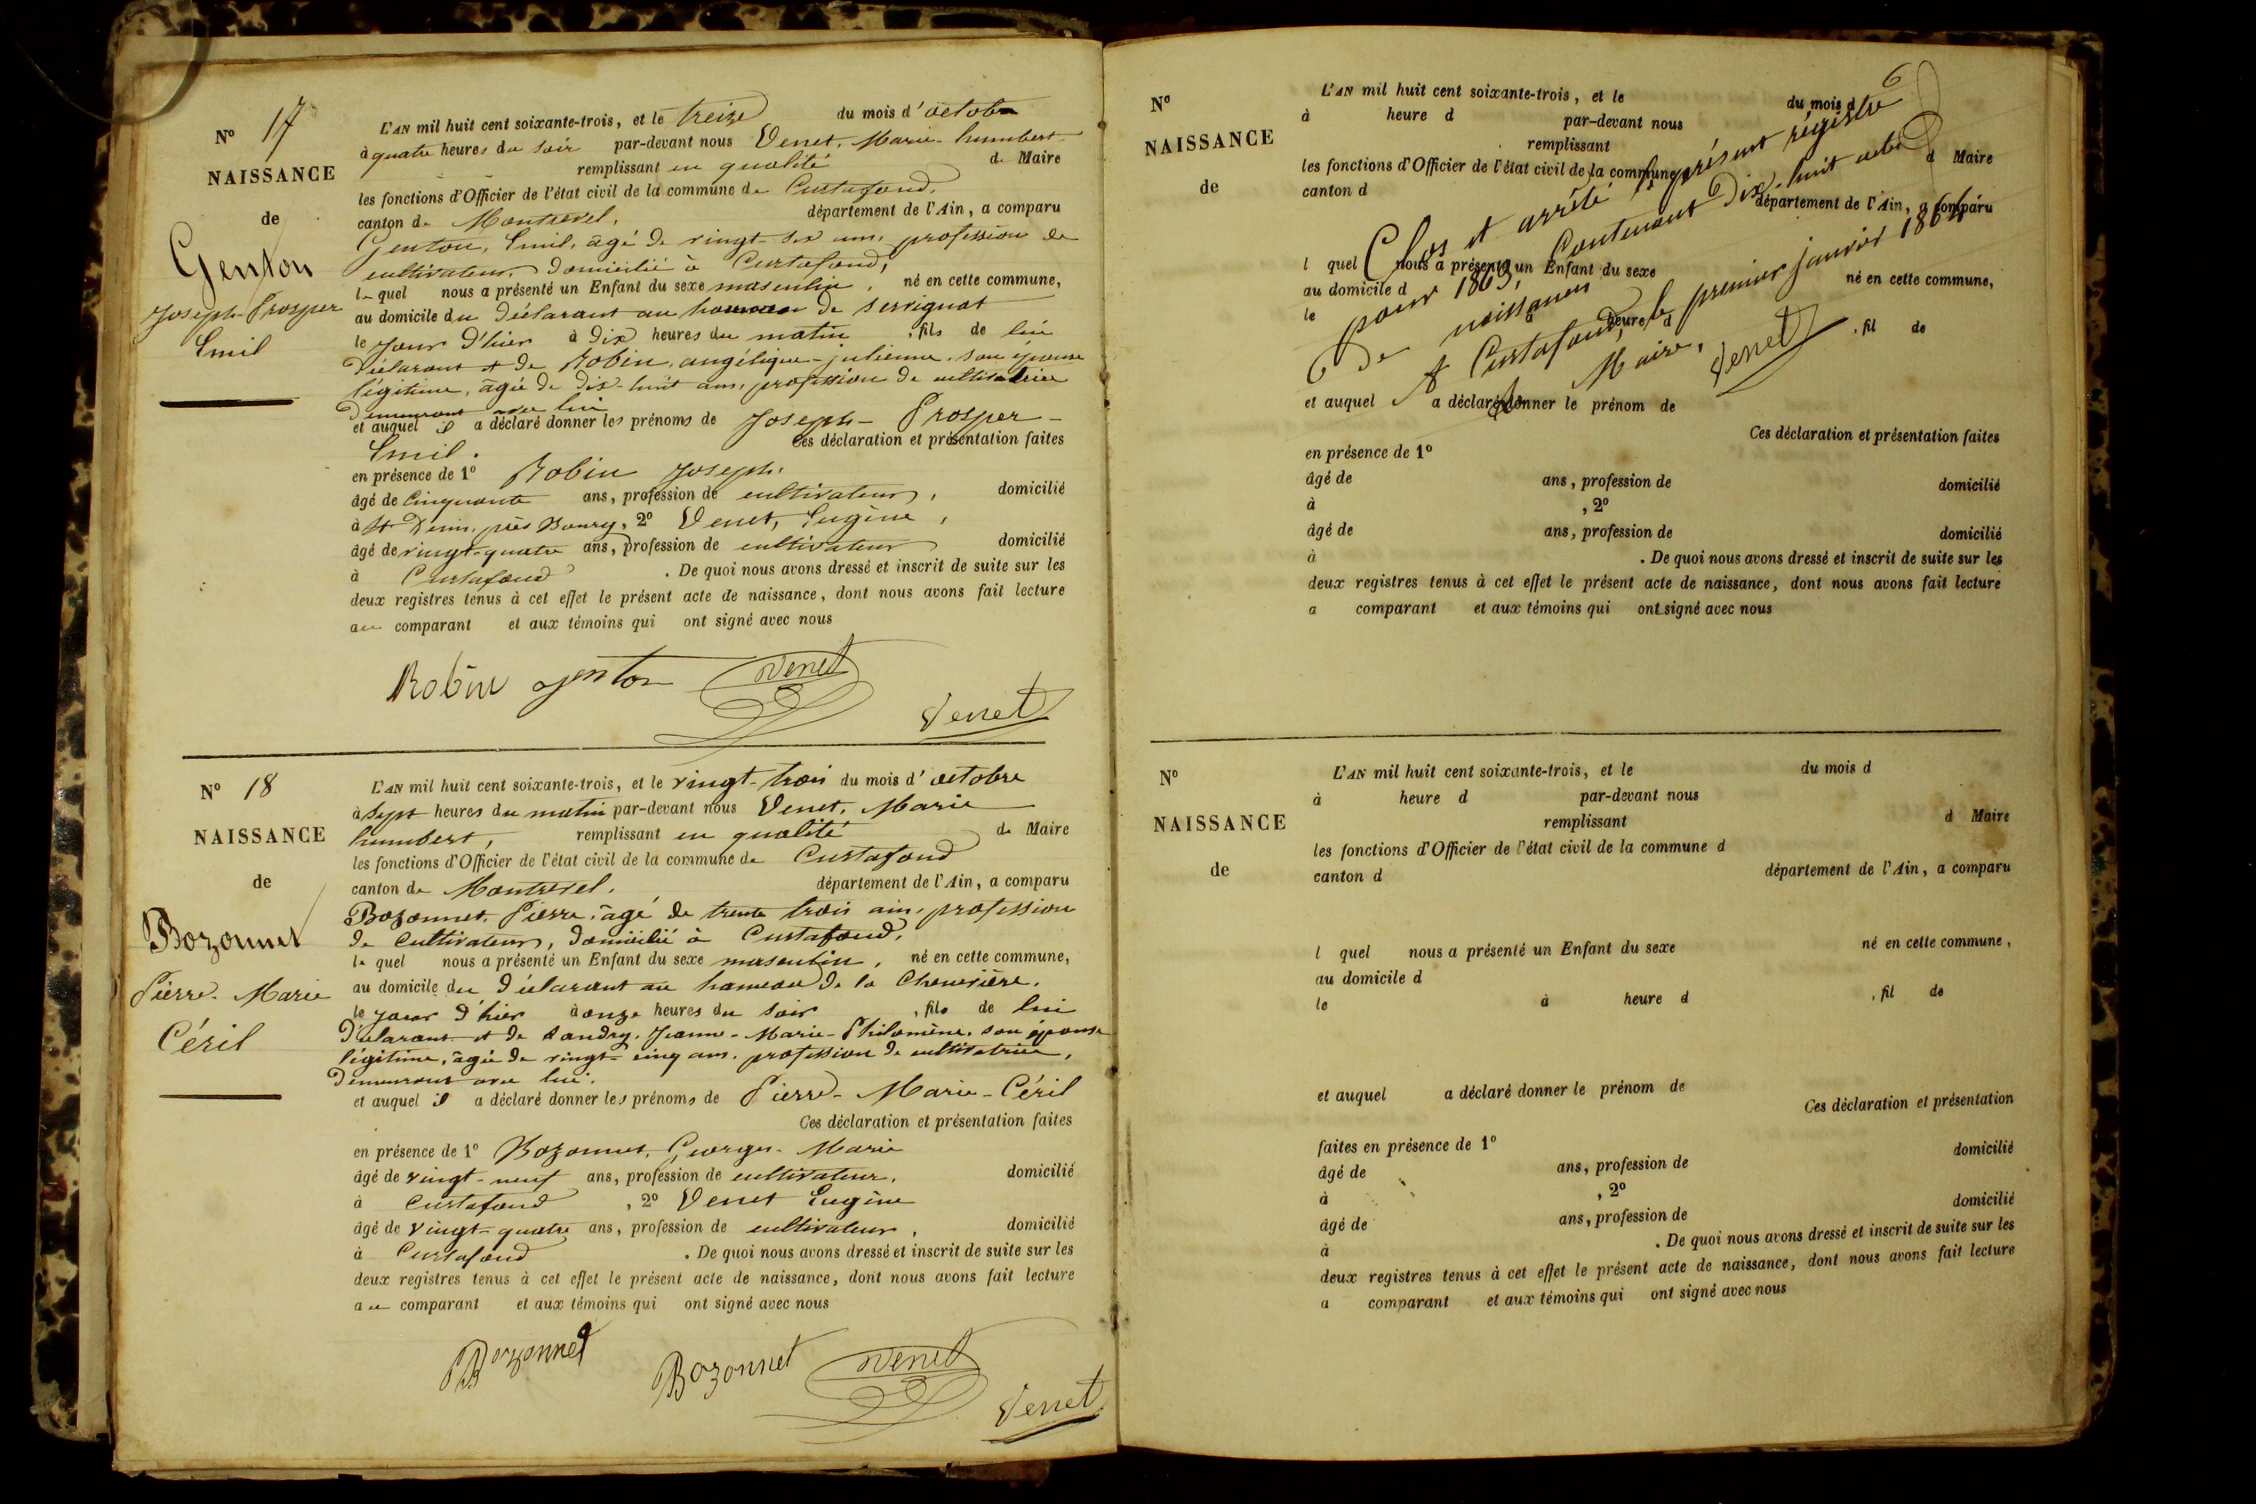 N° 17
NAISSANCE
de
Genton
Joseph-Prosper
Emil
L'AN mil huit cent soixante-trois, et le treize du mois d'octobre
à quatre heures du soir par-devant nous Venet, Marie-humbert
remplissant en qualité de Maire
les fonctions d'Officier de l'état civil de la commune de Curtafond,
canton de Montrevel, département de l'Ain, a comparu
Genton, Emil, âgé de vingt-six ans, profession de
cultivateur, domicilié à Curtafond,
lequel nous a présenté un Enfant du sexe masculin, né en cette commune,
au domicile du déclarant au hameau de serrignat
le jour d'hier à dix heures du matin, fils de lui
déclarant et de Robin, angélique-julienne, son épouse
légitime, âgée de dix-huit ans, profession de cultivatrice
demeurant avec lui
et auquel il a déclaré donner les prénoms de Joseph-Prosper-
Emil. Ces déclaration et présentation faites
en présence de 1° Robin Joseph,
âgé de Cinquante ans, profession de cultivateur, domicilié
à St Denis, près Bourg, 2° Venet, Eugène,
âgé de vingt-quatre ans, profession de cultivateur domicilié
à Curtafond. De quoi nous avons dressé et inscrit de suite sur les
deux registres tenus à cet effet le présent acte de naissance, dont nous avons fait lecture
au comparant et aux témoins qui ont signé avec nous
Robin genton Venet
Venet
N° 18
NAISSANCE
de
Bozonnet
Pierre-Marie
Céril
L'AN mil huit cent soixante-trois, et le vingt-trois du mois d'octobre
à sept heures du matin par-devant nous Venet, Marie
humbert, remplissant en qualité de Maire
les fonctions d'Officier de l'état civil de la commune de Curtafond
canton de Montrevel, département de l'Ain, a comparu
Bozonnet, Pierre, âgé de trente trois ans, profession
de Cultivateur, domicilié à Curtafond,
lequel nous a présenté un Enfant du sexe masculin, né en cette commune,
au domicile du déclarant au hameau de la Chenevière,
le jour d'hier à onze heures du soir, fils de lui
déclarant et de Landry, Jeanne-Marie-Philomène, son épouse
légitime, âgée de vingt-cinq ans, profession de cultivatrice,
demeurant avec lui.
et auquel il a déclaré donner les prénoms de Pierre-Marie-Céril
Ces déclaration et présentation faites
en présence de 1° Bozonnet, Georges-Marie
âgé de vingt-neuf ans, profession de cultivateur, domicilié
à Curtafond, 2° Venet Eugène
âgé de vingt-quatre ans, profession de cultivateur, domicilié
à Curtafond. De quoi nous avons dressé et inscrit de suite sur les
deux registres tenus à cet effet le présent acte de naissance, dont nous avons fait lecture
au comparant et aux témoins qui ont signé avec nous
Bozonnet Bozonnet Venet
Venet
6
N°
NAISSANCE
de
L'AN mil huit cent soixante-trois, et le du mois d
à heure d par-devant nous
remplissant d Maire
les fonctions d'Officier de l'état civil de la commune d
canton d département de l'Ain, a comparu
l quel nous a présenté un Enfant du sexe né en cette commune,
au domicile d
le à heure d, fil de
et auquel a déclaré donner le prénom de
Ces déclaration et présentation faites
en présence de 1°
âgé de ans, profession de domicilié
à, 2°
âgé de ans, profession de domicilié
à. De quoi nous avons dressé et inscrit de suite sur les
deux registres tenus à cet effet le présent acte de naissance, dont nous avons fait lecture
a comparant et aux témoins qui ont signé avec nous
Clos et arrêté le présent régistre
pour 1863, Contenant Dix-huit actes
De naissances
A Curtafond, le premier janvier 1864
Le Maire,
Venet
N°
NAISSANCE
de
L'AN mil huit cent soixante-trois, et le du mois d
à heure d par-devant nous
remplissant d Maire
les fonctions d'Officier de l'état civil de la commune d
canton d département de l'Ain, a comparu
l quel nous a présenté un Enfant du sexe né en cette commune,
au domicile d
le à heure d, fil de
et auquel a déclaré donner le prénom de
Ces déclaration et présentation
faites en présence de 1° domicilié
âgé de ans, profession de
à, 2° domicilié
âgé de ans, profession de
à. De quoi nous avons dressé et inscrit de suite sur les
deux registres tenus à cet effet le présent acte de naissance, dont nous avons fait lecture
a comparant et aux témoins qui ont signé avec nous